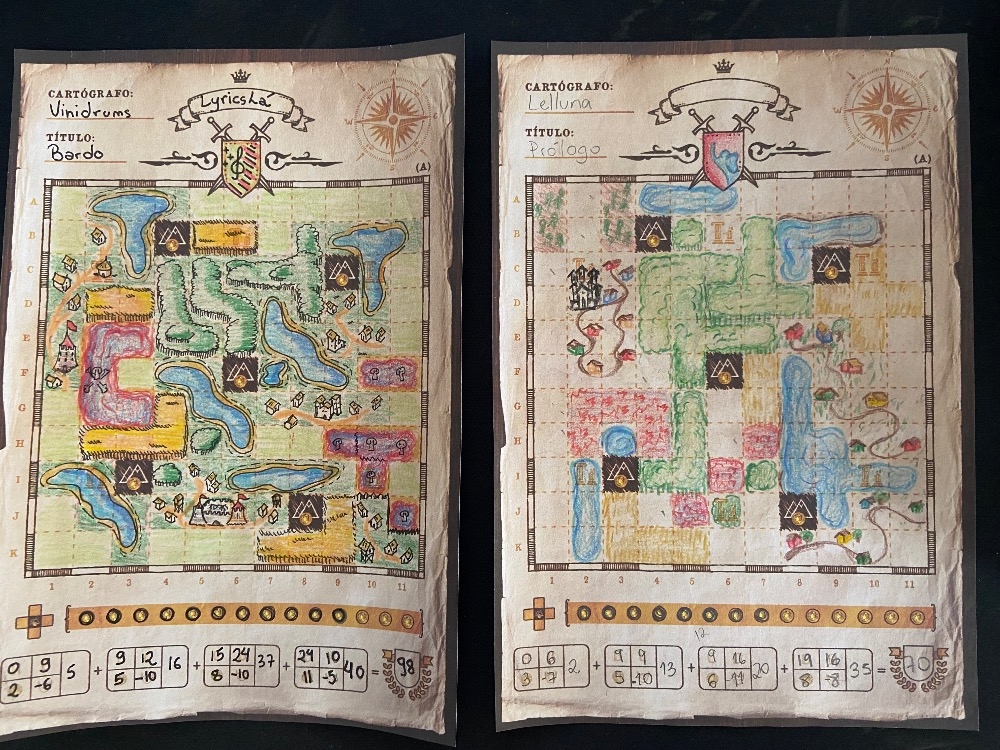 CARTÓGRAFO:
Vinidrums
TÍTULO:
Bardo
LyricsLá
(A)
N
A
B
C
D
E
F
G
H
I
J
K
1 2 3 4 5 6 7 8 9 10 11
0 9 5 + 9 12 16 + 15 24 37 + 24 10 40 = 98
2 -6 5 -10 8 -10 11 -5
CARTÓGRAFO:
Lelluna
TÍTULO:
Prólogo
(A)
N
A
B
C
D
E
F
G
H
I
J
K
1 2 3 4 5 6 7 8 9 10 11
12
0 6 2 + 9 9 13 + 9 16 20 + 19 16 35 = 70
3 -7 5 -10 6 -11 8 -8